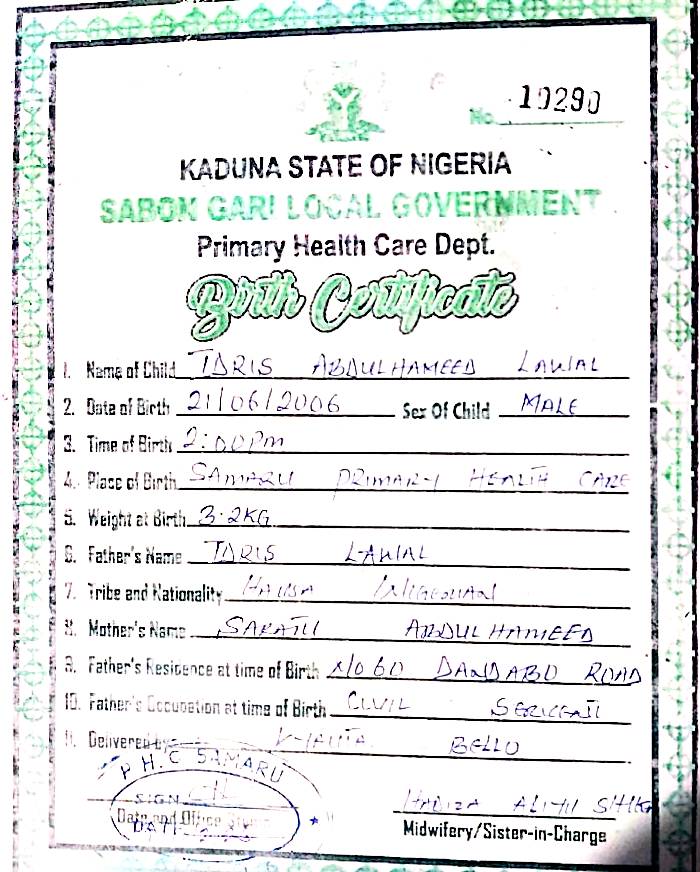 No. 10290
KADUNA STATE OF NIGERIA
SABON GARI LOCAL GOVERNMENT
Primary Health Care Dept.
Birth Certificate
1. Name of Child IDRIS ABDULHAMEED LAWAL
2. Date of Birth 21/06/2006 Sex Of Child MALE
3. Time of Birth 2:00pm
4. Place of Birth SAMARU PRIMARY HEALTH CARE
5. Weight at Birth 3.2KG
6. Father's Name IDRIS LAWAL
7. Tribe and Nationality HAUSA /NIGERIAN
8. Mother's Name SARATU ABDULHAMEED
9. Father's Residence at time of Birth NO 60 DANDABO ROAD
10. Father's Occupation at time of Birth CIVIL
11. Delivered by BELLO
P.H.C SAMARU
SIGN
Date and Office
DATE
HADIZA ALIYU
Midwifery/Sister-in-Charge